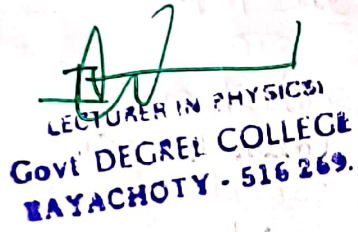 LECTURER IN PHYSICS)
Govt DEGREE COLLEGE
RAYACHOTY - 516 269.